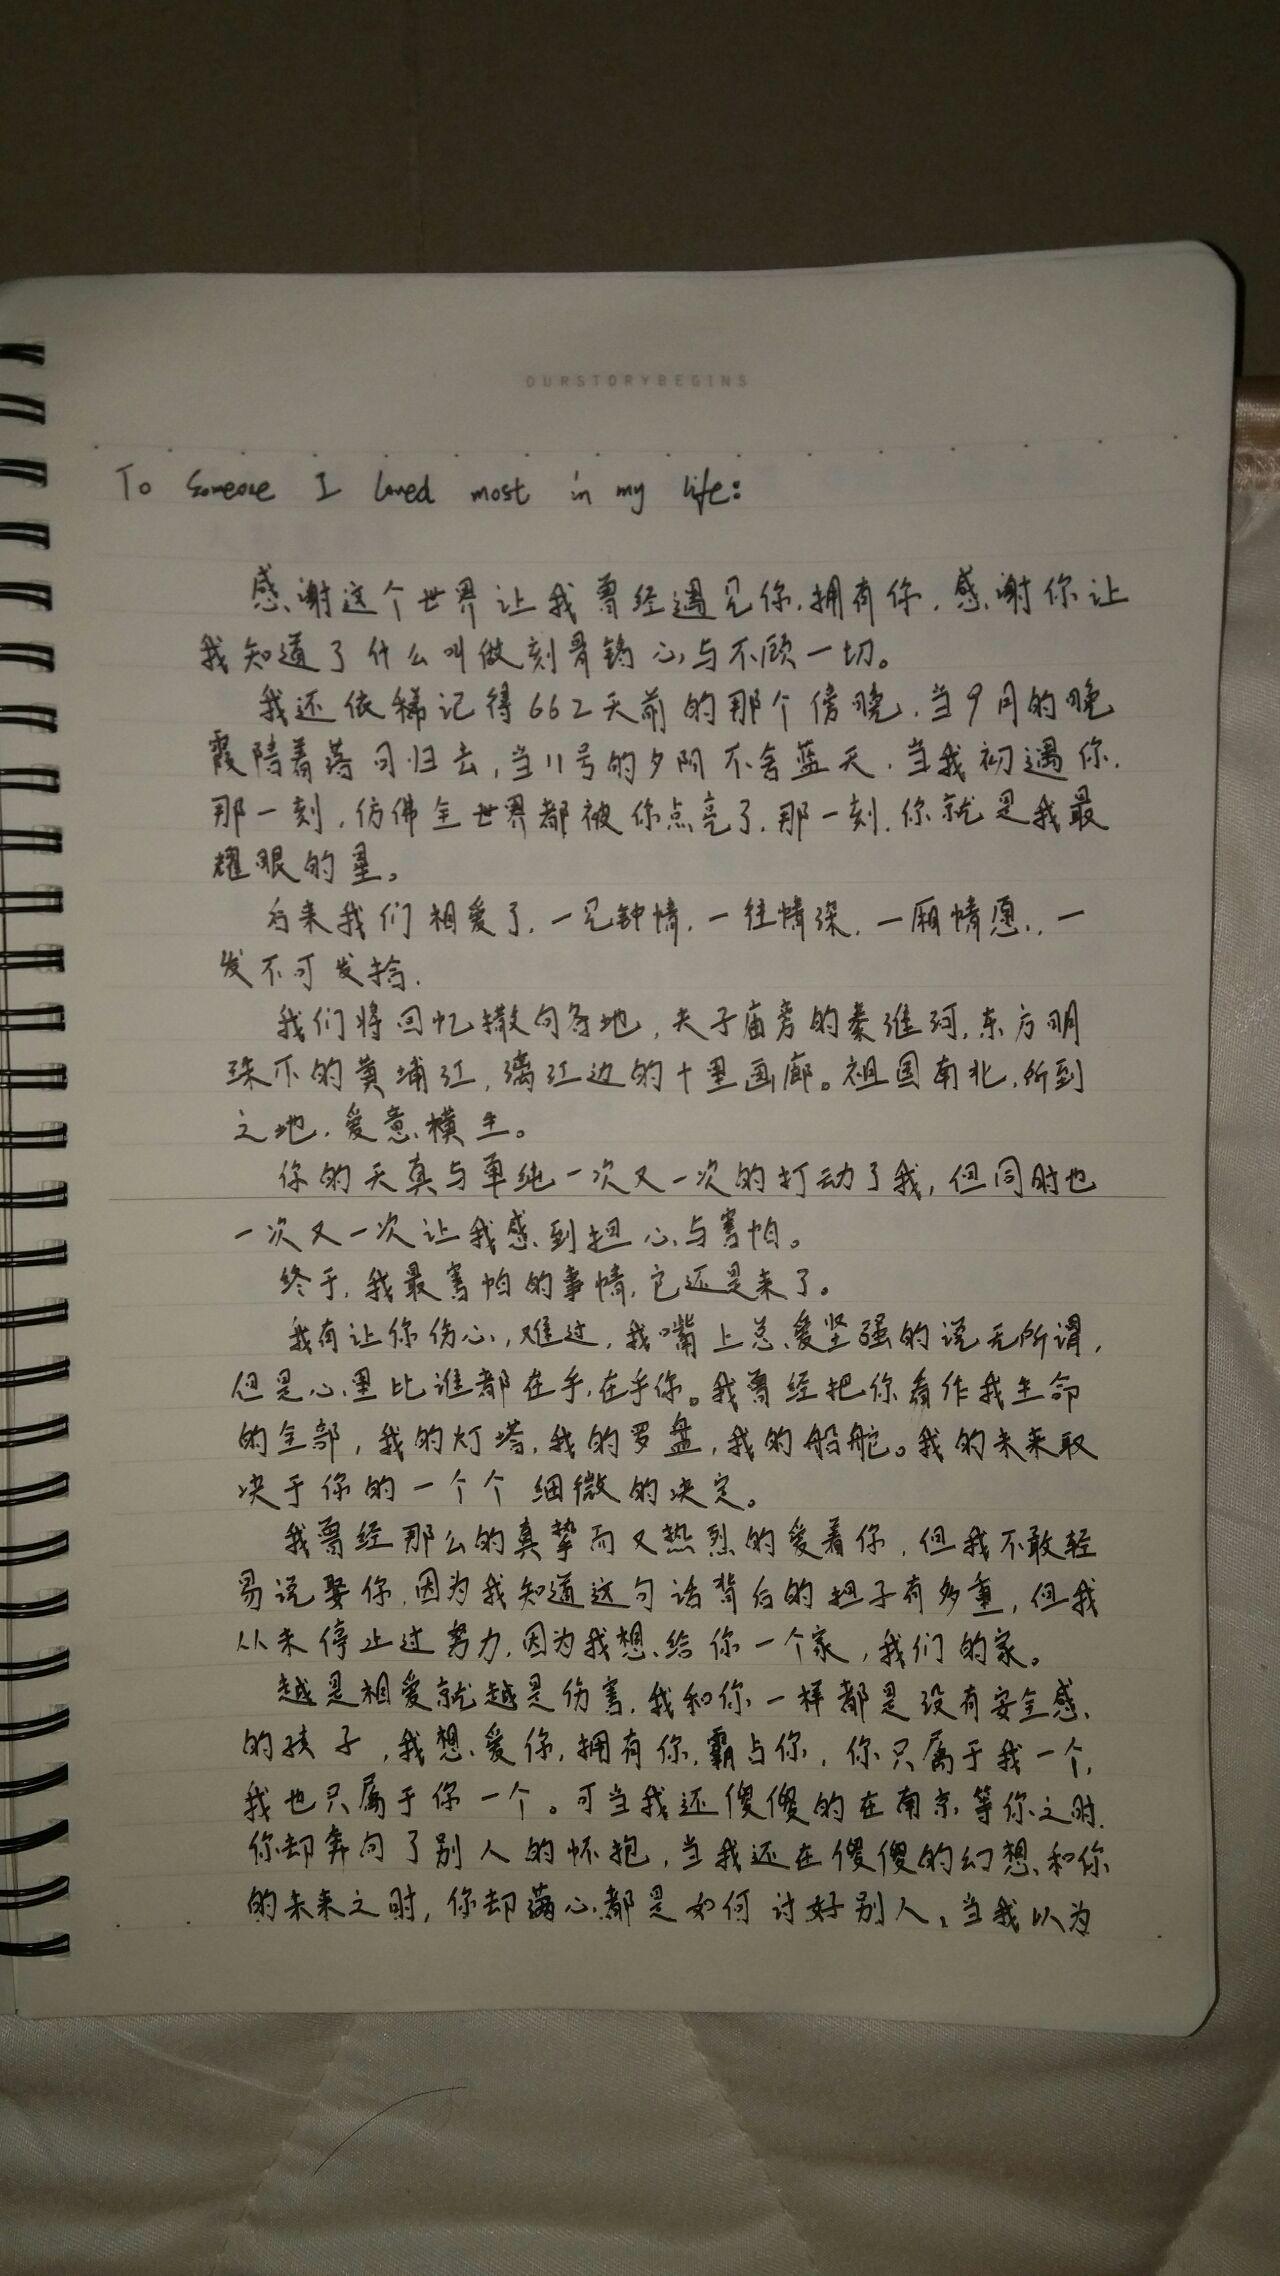 OURSTORYBEGINS
To Someone I loved most in my life:
感谢这个世界让我曾经遇见你,拥有你,感谢你让
我知道了什么叫做刻骨铭心与不顾一切。
我还依稀记得662天前的那个傍晚,当9月的晚
霞陪着落日归去,当11号的夕阳不舍蓝天,当我初遇你,
那一刻,仿佛全世界都被你点亮了,那一刻,你就是我最
耀眼的星。
后来我们相爱了,一见钟情,一往情深,一厢情愿,一
发不可发拾.
我们将回忆撒向各地,夫子庙旁的秦淮河,东方明
珠下的黄埔江,漓江边的十里画廊。祖国南北,所到
之地,爱意横生。
你的天真与单纯一次又一次的打动了我,但同时也
一次又一次让我感到担心与害怕。
终于,我最害怕的事情,它还是来了。
我有让你伤心,难过,我嘴上总爱坚强的说无所谓,
但是心里比谁都在乎,在乎你。我曾经把你看作我生命
的全部,我的灯塔,我的罗盘,我的船舵。我的未来取
决于你的一个个细微的决定。
我曾经那么的真挚而又热烈的爱着你,但我不敢轻
易说娶你,因为我知道这句话背后的担子有多重,但我
从未停止过努力,因为我想给你一个家,我们的家。
越是相爱就越是伤害,我和你一样都是没有安全感
的孩子,我想爱你,拥有你,霸占你,你只属于我一个,
我也只属于你一个。可当我还傻傻的在南京等你之时,
你却奔向了别人的怀抱,当我还在傻傻的幻想和你
的未来之时,你却满心都是如何讨好别人。当我以为